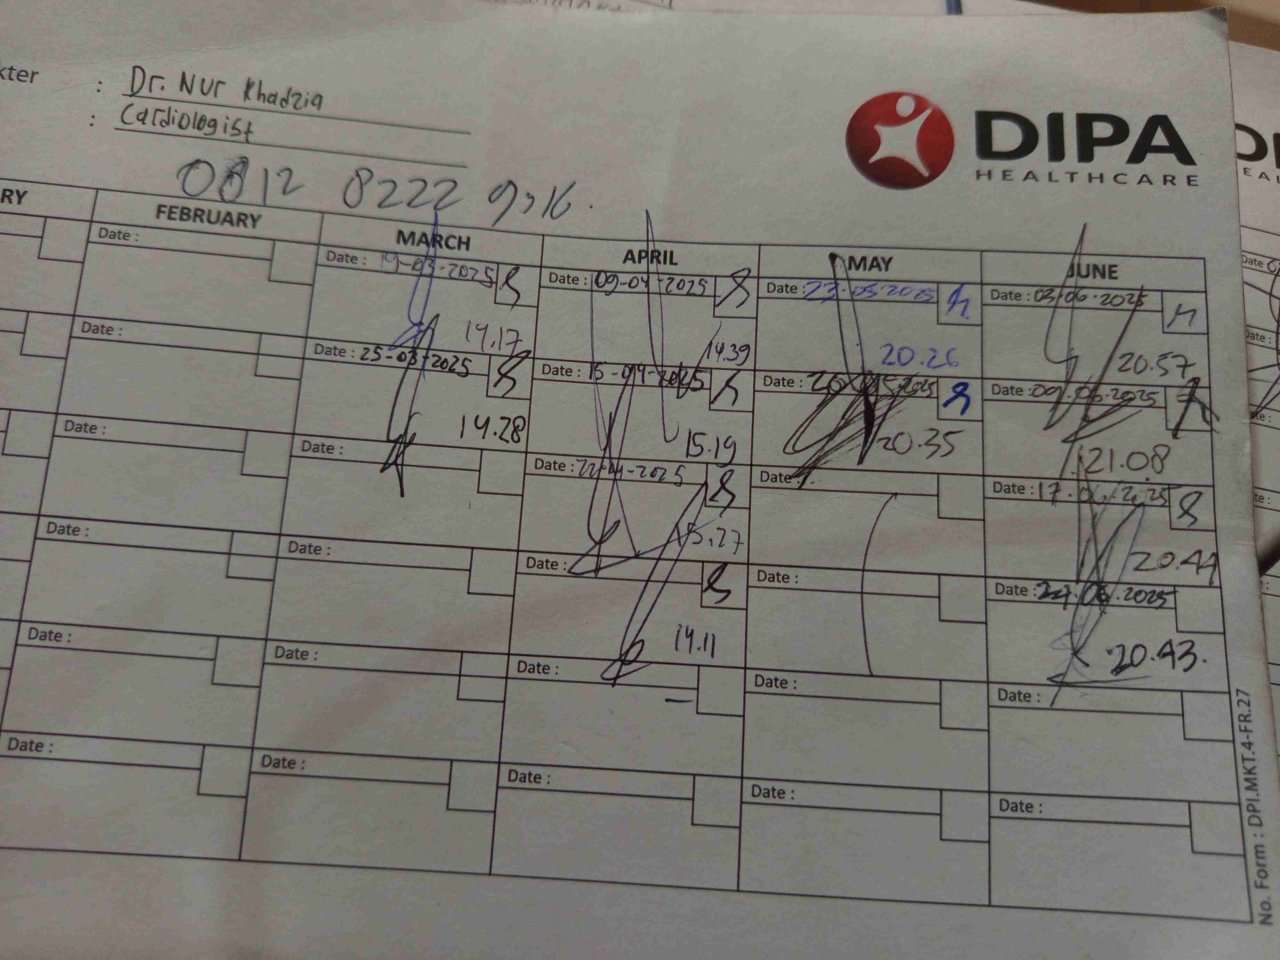 kter : Dr. Nur Khadzia
: Cardiologist
DIPA
HEALTHCARE
0812 8222
RY FEBRUARY MARCH APRIL MAY JUNE
Date : Date : 19-03-2025 Date : 09-04-2025 Date : 23-05-2025 Date : 03-06-2025
14.17 14.39 20.26 20.57
Date : Date : 25-03-2025 Date : 15-04-2025 Date : Date : 09-06-2025
14.28 15.19 20.35 21.08
Date : Date : Date : 22-04-2025 Date : Date : 17.06.2025
15.27 20.44
Date : Date : Date : Date : Date :
14.11 20.43.
Date : Date : Date : Date : Date :
Date : Date : Date : Date : Date :
No. Form : DPI.MKT.4-FR.27